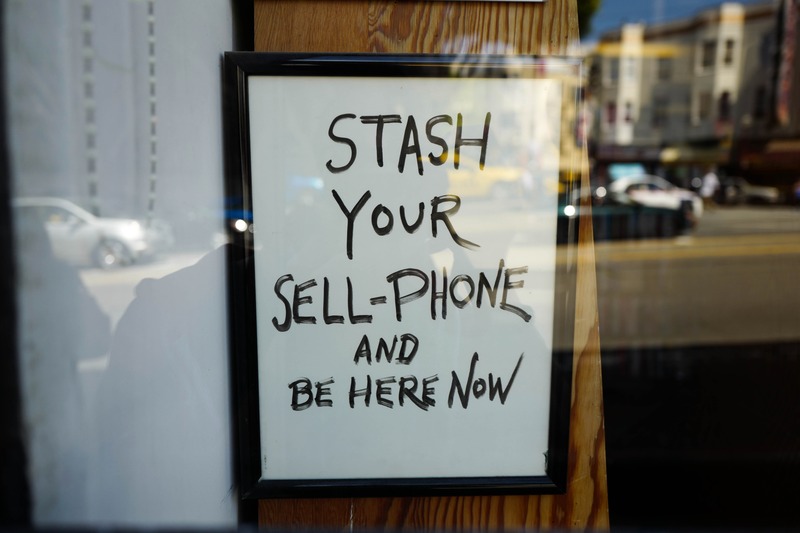 STASH
YOUR
SELL-PHONE
AND
BE HERE NOW